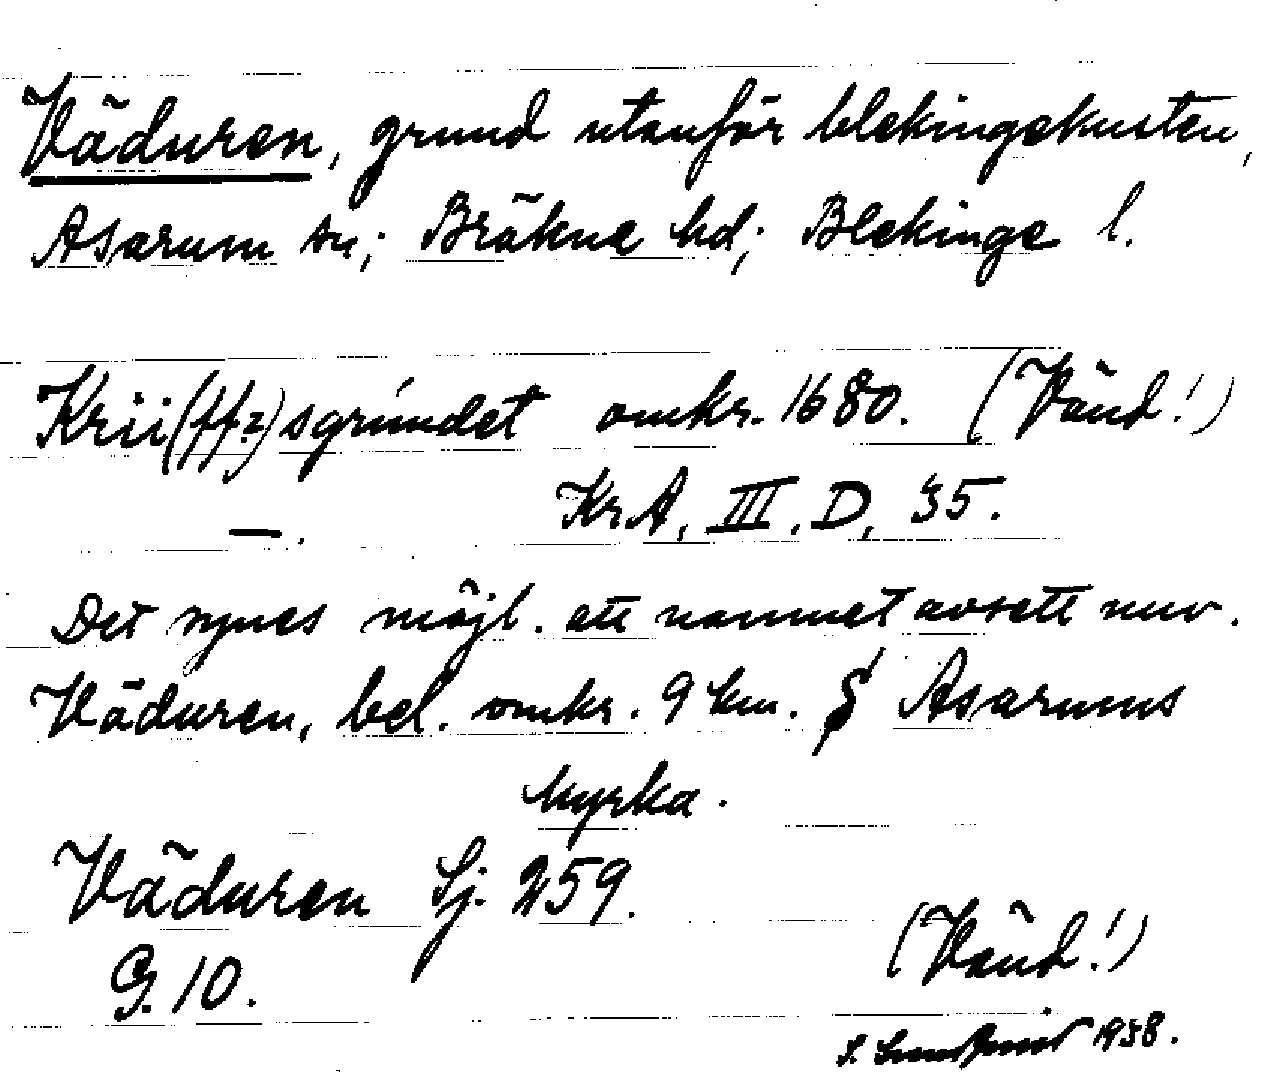 Väduren, grund utanför blekingekusten,
Asarum sn; Bräkne hd; Blekinge l.
Krii(ff?)sgrúndet omkr. 1680. (Vänd!)
KrA, III. D, 35.
—.
Det synes möjl. att namnet avsett nuv.
Väduren, bel. omkr. 9 km. S Asarums
kyrka.
Väduren Sj. 259.
G. 10.
(Vänd!)
S. 1938.